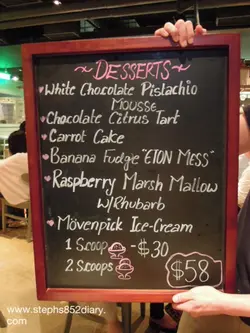 ~DESSERTS~
White Chocolate Pistachio
MOUSSE
Chocolate Citrus Tart
Carrot Cake
Banana Fudgie "ETON MESS"
Raspberry Marsh Mallow
W/Rhubarb
Mövenpick Ice-Cream
1 Scoop - $30
2 Scoops $58
www.stephs852diary.
com